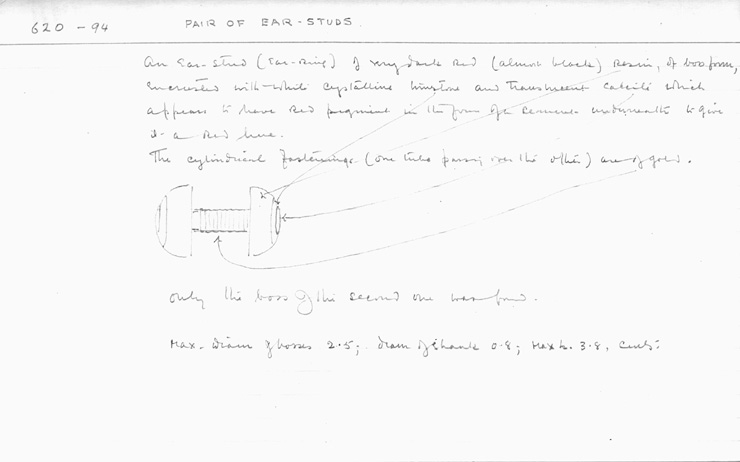 620 - 94
PAIR OF EAR-STUDS.
An Ear-stud (Ear-ring) of very dark red (almost black) Resin, of boss form,
encrusted with white crystalline limestone and translucent calcite which
appears to have red pigment in the form of a cement underneath to give
it a red hue.
The cylindrical fastenings (one tube passing over the other) are of gold.
only the boss of the second one was found.
Max. Diam of bosses 2.5; diam of shank 0.8; Max L. 3.8, Cents: